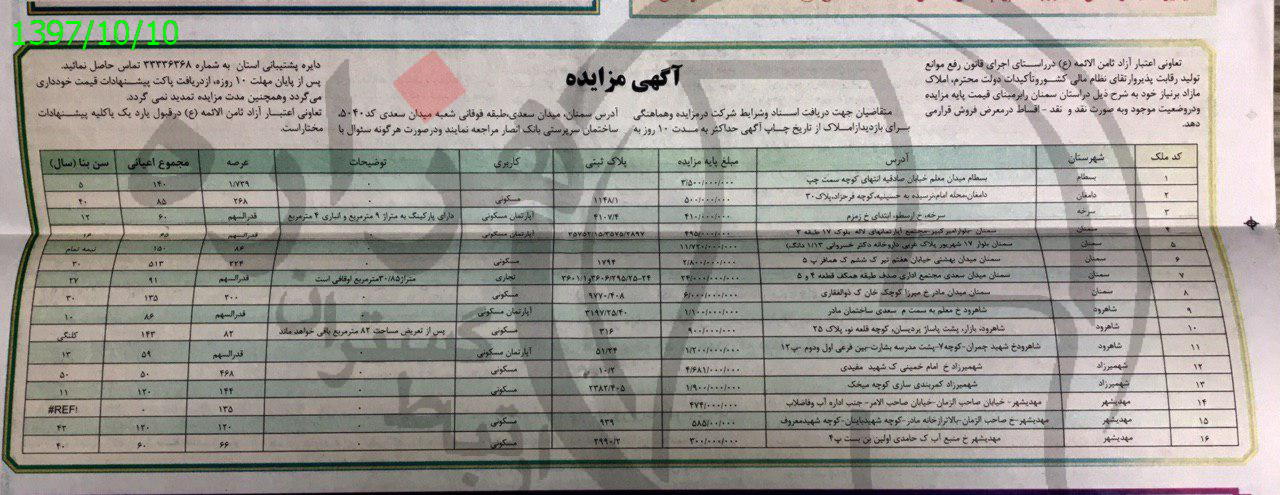 1397/10/10
آگهی مزایده
تعاونی اعتبار آزاد ثامن الائمه (ع) درراستای اجرای قانون رفع موانع
تولید رقابت پذیروارتقای نظام مالی کشوروتأکیدات دولت محترم، املاک
مازاد برنیاز خود به شرح ذیل دراستان سمنان رابرمبنای قیمت پایه مزایده
ودروضعیت موجود وبه صورت نقد و نقد - اقساط درمعرض فروش قرارمی
دهد.
متقاضیان جهت دریافت اسناد وشرایط شرکت درمزایده وهماهنگی
برای بازدیدازاملاک از تاریخ چاپ آگهی حداکثر به مدت ۱۰ روز به
آدرس سمنان، میدان سعدی،طبقه فوقانی شعبه میدان سعدی کد ۵۰۴۰،
ساختمان سرپرستی بانک انصار مراجعه نمایند ودرصورت هرگونه سئوال با
دایره پشتیبانی استان به شماره ۳۳۳۳۶۳۶۸ تماس حاصل نمائید.
پس از پایان مهلت ۱۰ روزه، ازدریافت پاکت پیشنهادات قیمت خودداری
می‌گردد وهمچنین مدت مزایده تمدید نمی گردد.
تعاونی اعتبار آزاد ثامن الائمه (ع) درقبول یارد یک یاکلیه پیشنهادات
مختاراست.
کد ملک شهرستان آدرس مبلغ پایه مزایده پلاک ثبتی کاربری توضیحات عرصه مجموع اعیانی سن بنا (سال)
۱ بسطام بسطام میدان معلم خیابان صادقیه انتهای کوچه سمت چپ ۳/۵۰۰/۰۰۰/۰۰۰ ۰ ۱/۷۳۹ ۱۴۰ ۵
۲ دامغان دامغان،محله امام،نرسیده به حسینیه،کوچه فرحزاد،پلاک۳۰ ۵۰۰/۰۰۰/۰۰۰ ۱۱۴۸/۱ مسکونی ۰ ۲۶۸ ۸۵ ۴۰
۳ سرخه سرخه، خ ارسطو، ابتدای خ زمزم ۴۱۰/۰۰۰/۰۰۰ ۴۱۰۷/۴ آپارتمان مسکونی دارای پارکینگ به متراژ ۹ مترمربع و انباری ۴ مترمربع قدرالسهم ۶۰ ۱۲
۴ سمنان سمنان -بلوارامیرکبیر-مجتمع آپارتمانهای لاله -بلوک ۱۷ طبقه ۳ ۴۹۵/۰۰۰/۰۰۰ آپارتمان مسکونی ۰ قدرالسهم
۵ سمنان سمنان بلوار ۱۷ شهریور پلاک غربی داروخانه دکتر خسروانی (۱/۱۳ دانگ) ۱۱/۷۲۰/۰۰۰/۰۰۰ ۸۶ ۱۵۰ نیمه تمام
۶ سمنان سمنان میدان بهشتی خیابان هفتم تیر ک ششم ک همافر پ ۵ ۲/۸۰۰/۰۰۰/۰۰۰ ۱۷۹۴ مسکونی ۰ ۳۲۴ ۵۱۳ ۳۰
۷ سمنان سمنان میدان سعدی مجتمع اداری صدف طبقه همکف قطعه ۴ و ۵ ۲۴/۰۰۰/۰۰۰/۰۰۰ تجاری متراژ۳۰/۸۵مترمربع اوقافی است قدرالسهم ۹۱ ۲۷
۸ سمنان سمنان میدان مادر خ میرزا کوچک خان ک ذوالفقاری ۶/۰۰۰/۰۰۰/۰۰۰ ۹۷۷۰/۴۰۸ مسکونی ۰ ۲۰۰ ۱۳۵ ۳۰
۹ شاهرود شاهرود خ معلم به سمت م سعدی ساختمان مادر ۱/۱۰۰/۰۰۰/۰۰۰ ۳۱۹۷/۲۵/۴۰ آپارتمان مسکونی ۰ قدرالسهم ۸۶ ۱۰
۱۰ شاهرود شاهرود، بازار، پشت پاساژ پردیسان، کوچه قلعه نو، پلاک ۲۵ ۹۰۰/۰۰۰/۰۰۰ ۳۱۶ مسکونی پس از تعریض مساحت ۸۲ مترمربع باقی خواهد ماند ۸۲ ۱۴۳ کلنگی
۱۱ شاهرود شاهرودخ شهید چمران-کوچه۷-پشت مدرسه بشارت-بین فرعی اول ودوم -پ۱۲ ۱/۲۰۰/۰۰۰/۰۰۰ ۵۱/۲۴ آپارتمان مسکونی ۰ قدرالسهم ۵۹ ۱۳
۱۲ شهمیرزاد شهمیرزاد خ امام خمینی ک شهید مفیدی ۴/۶۸۱/۰۰۰/۰۰۰ ۱۰/۲ مسکونی ۰ ۴۶۸ ۵۰ ۵۰
۱۳ شهمیرزاد شهمیرزاد کمربندی ساری کوچه میخک ۱/۹۰۰/۰۰۰/۰۰۰ ۲۳۸۲/۴۰۵ مسکونی ۰ ۱۴۴ ۱۲۰ ۱۱
۱۴ مهدیشهر مهدیشهر- خیابان صاحب الزمان-خیابان صاحب الامر- جنب اداره آب وفاضلاب ۴۷۴/۰۰۰/۰۰۰ ۰ ۱۳۵ ۰ #REF!
۱۵ مهدیشهر مهدیشهر-خ صاحب الزمان-بالاترازخانه مادر-کوچه شهیدیاینان-کوچه شهیدمعروف ۵۸۵/۰۰۰/۰۰۰ ۹۳۹ مسکونی ۰ ۱۲۰ ۱۲۰ ۴۲
۱۶ مهدیشهر مهدیشهر خ منبع آب ک حامدی اولین بن بست پ۴ ۳۰۰/۰۰۰/۰۰۰ ۲۹۹۰/۲ مسکونی ۰ ۶۶ ۶۰ ۴۰